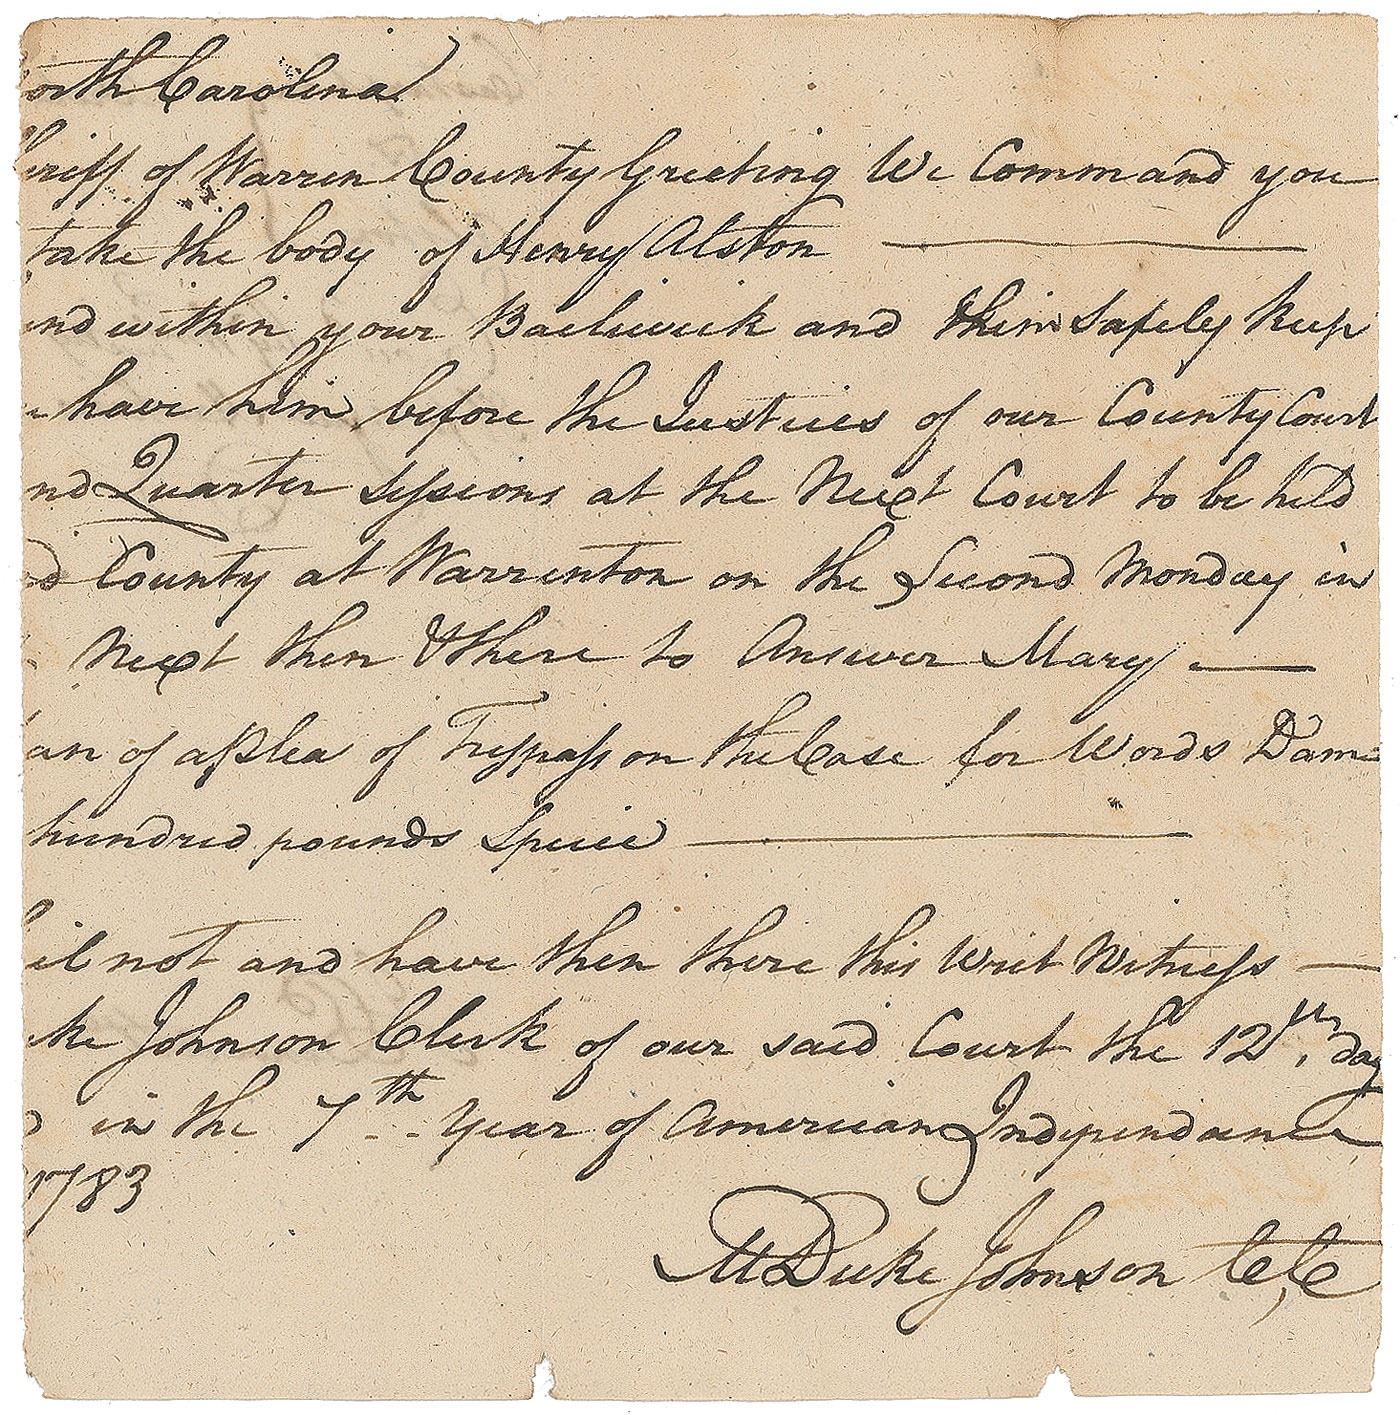 orth Carolina
heriff of Warren County Greeting We Command you
take the body of Henry Alston
und within your Bailiwick and him Safely Keep
have him before the Justices of our County Court
nd Quarter sessions at the Next Court to be held
d County at Warrenton on the Second Monday in
Next then & there to Answer Mary
an of a Plea of Trespass on the Case for Words Dam
hundred pounds Specie
il not and have then there this Writ Witness
ke Johnson Clerk of our said Court the 12th, day
in the 7th Year of American Independance
1783
M Duke Johnson C,C